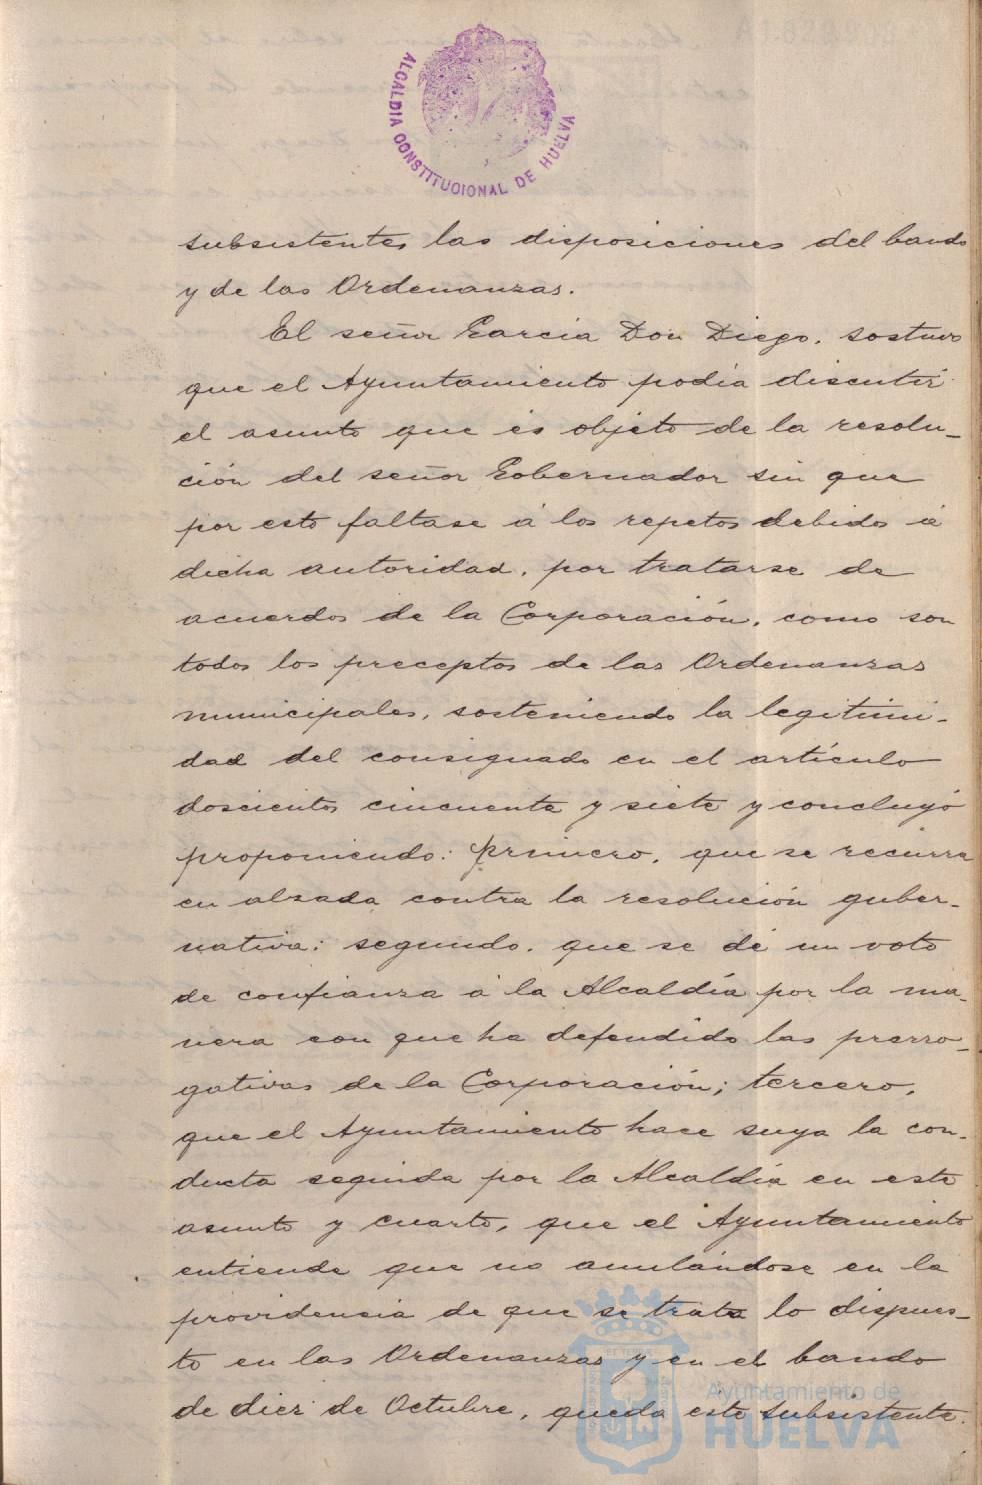 ALCALDIA CONSTITUCIONAL DE HUELVA
subsistentes las disposiciones del bando
y de las Ordenanzas.
El señor García Don Diego, sostuvo
que el Ayuntamiento podía discutir
el asunto que es objeto de la resolu-
ción del señor Gobernador sin que
por esto faltase á los repetos debidos á
dicha autoridad, por tratarse de
acuerdos de la Corporación, como son
todos los preceptos de las Ordenanzas
municipales, sosteniendo la legitimi-
dad del consignado en el artículo
doscientos cincuenta y siete y concluyó
proponiendo: primero, que se recurra
en alzada contra la resolución guber-
nativa; segundo, que se dé un voto
de confianza á la Alcaldía por la ma-
nera con que ha defendido las prerro-
gativas de la Corporación; tercero,
que el Ayuntamiento hace suya la con-
ducta seguida por la Alcaldía en este
asunto y cuarto, que el Ayuntamiento
entiende que no anulándose en la
providencia de que se trata lo dispues-
to en las Ordenanzas y en el bando
de diez de Octubre, queda este subsistente.
Ayuntamiento de
HUELVA